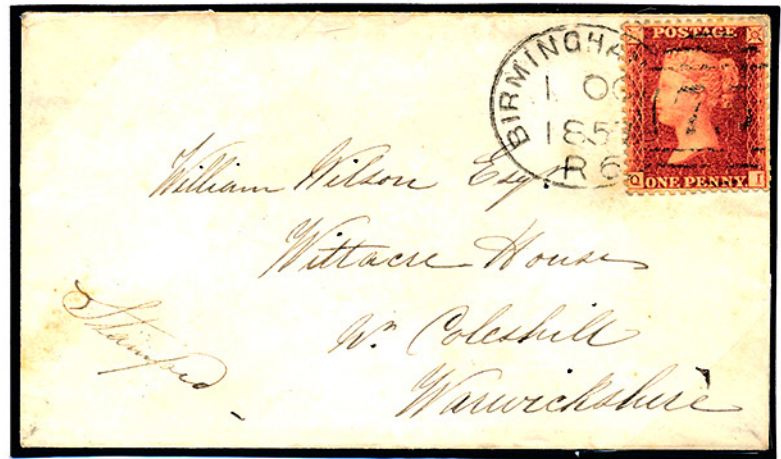 BIRMINGHA
1 OC
185
R 6
POSTAGE
ONE PENNY
Q I
William Wilson Esqr.
Wittacre House
Nr. Coleshill
Warwickshire
Stamped